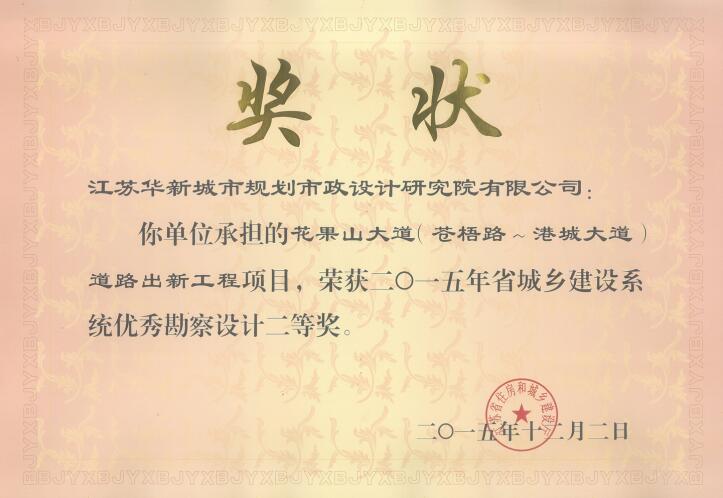 奖 状
江苏华新城市规划市政设计研究院有限公司：
你单位承担的花果山大道（苍梧路～港城大道）
道路出新工程项目，荣获二〇一五年省城乡建设系
统优秀勘察设计二等奖。
江苏省住房和城乡建设厅
二〇一五年十二月二日